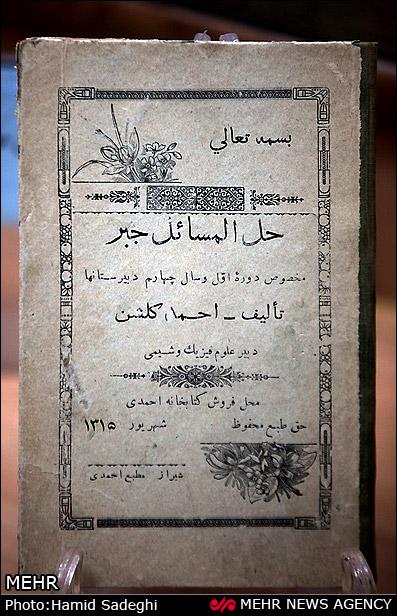 بسمه تعالی
حل المسائل جبر
مخصوص دورهٔ اول وسال چهارم دبیرستانها
تألیف - احمد گلشن
دبیر علوم فیزیک و شیمی
محل فروش کتابخانه احمدی
حق طبع محفوظ شهریور ۱۳۱۵
شیراز مطبع احمدی
MEHR
Photo:Hamid Sadeghi MEHR NEWS AGENCY